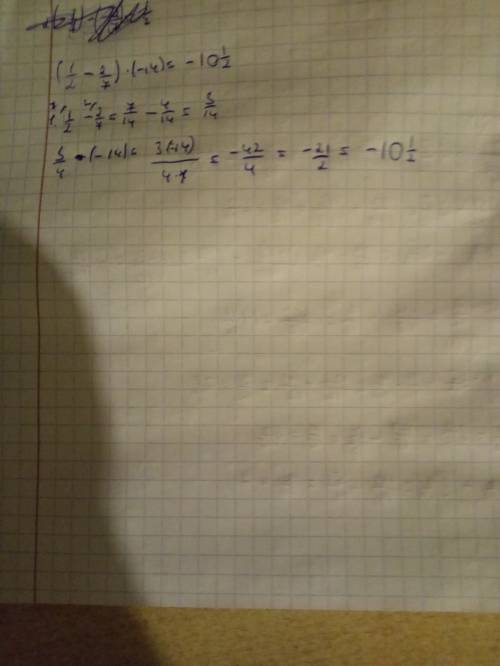 (1/2 - 2/7) · (-14) = -10 1/2
1. 1/2 - 2/7 = 7/14 - 4/14 = 3/14
3/4 · (-14) = 3(-14)/4·1 = -42/4 = -21/2 = -10 1/2